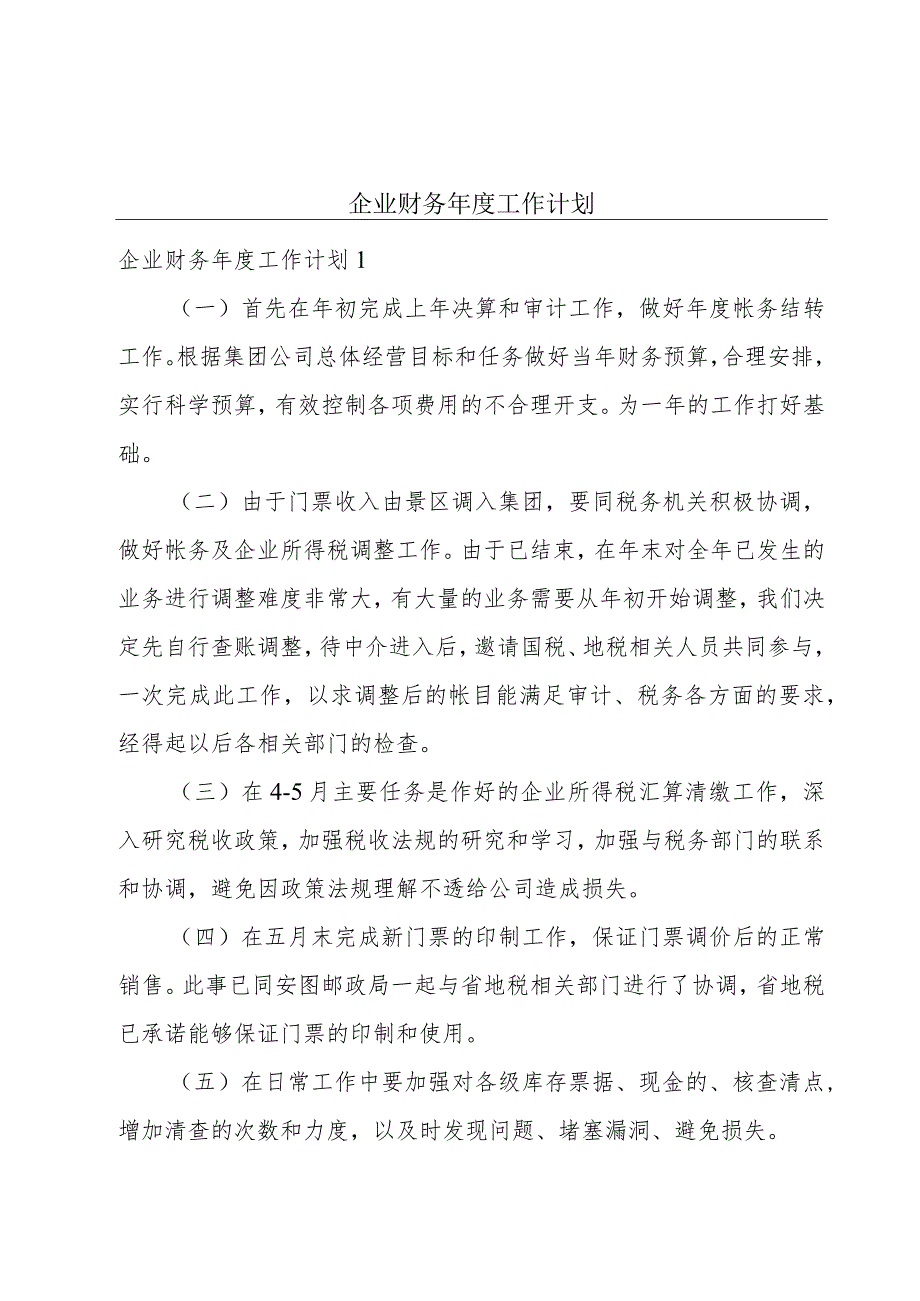 企业财务年度工作计划
企业财务年度工作计划1
（一）首先在年初完成上年决算和审计工作，做好年度帐务结转
工作。根据集团公司总体经营目标和任务做好当年财务预算，合理安排，
实行科学预算，有效控制各项费用的不合理开支。为一年的工作打好基
础。
（二）由于门票收入由景区调入集团，要同税务机关积极协调，
做好帐务及企业所得税调整工作。由于已结束，在年末对全年已发生的
业务进行调整难度非常大，有大量的业务需要从年初开始调整，我们决
定先自行查账调整，待中介进入后，邀请国税、地税相关人员共同参与，
一次完成此工作，以求调整后的帐目能满足审计、税务各方面的要求，
经得起以后各相关部门的检查。
（三）在4-5月主要任务是作好的企业所得税汇算清缴工作，深
入研究税收政策，加强税收法规的研究和学习，加强与税务部门的联系
和协调，避免因政策法规理解不透给公司造成损失。
（四）在五月末完成新门票的印制工作，保证门票调价后的正常
销售。此事已同安图邮政局一起与省地税相关部门进行了协调，省地税
已承诺能够保证门票的印制和使用。
（五）在日常工作中要加强对各级库存票据、现金的、核查清点，
增加清查的次数和力度，以及时发现问题、堵塞漏洞、避免损失。